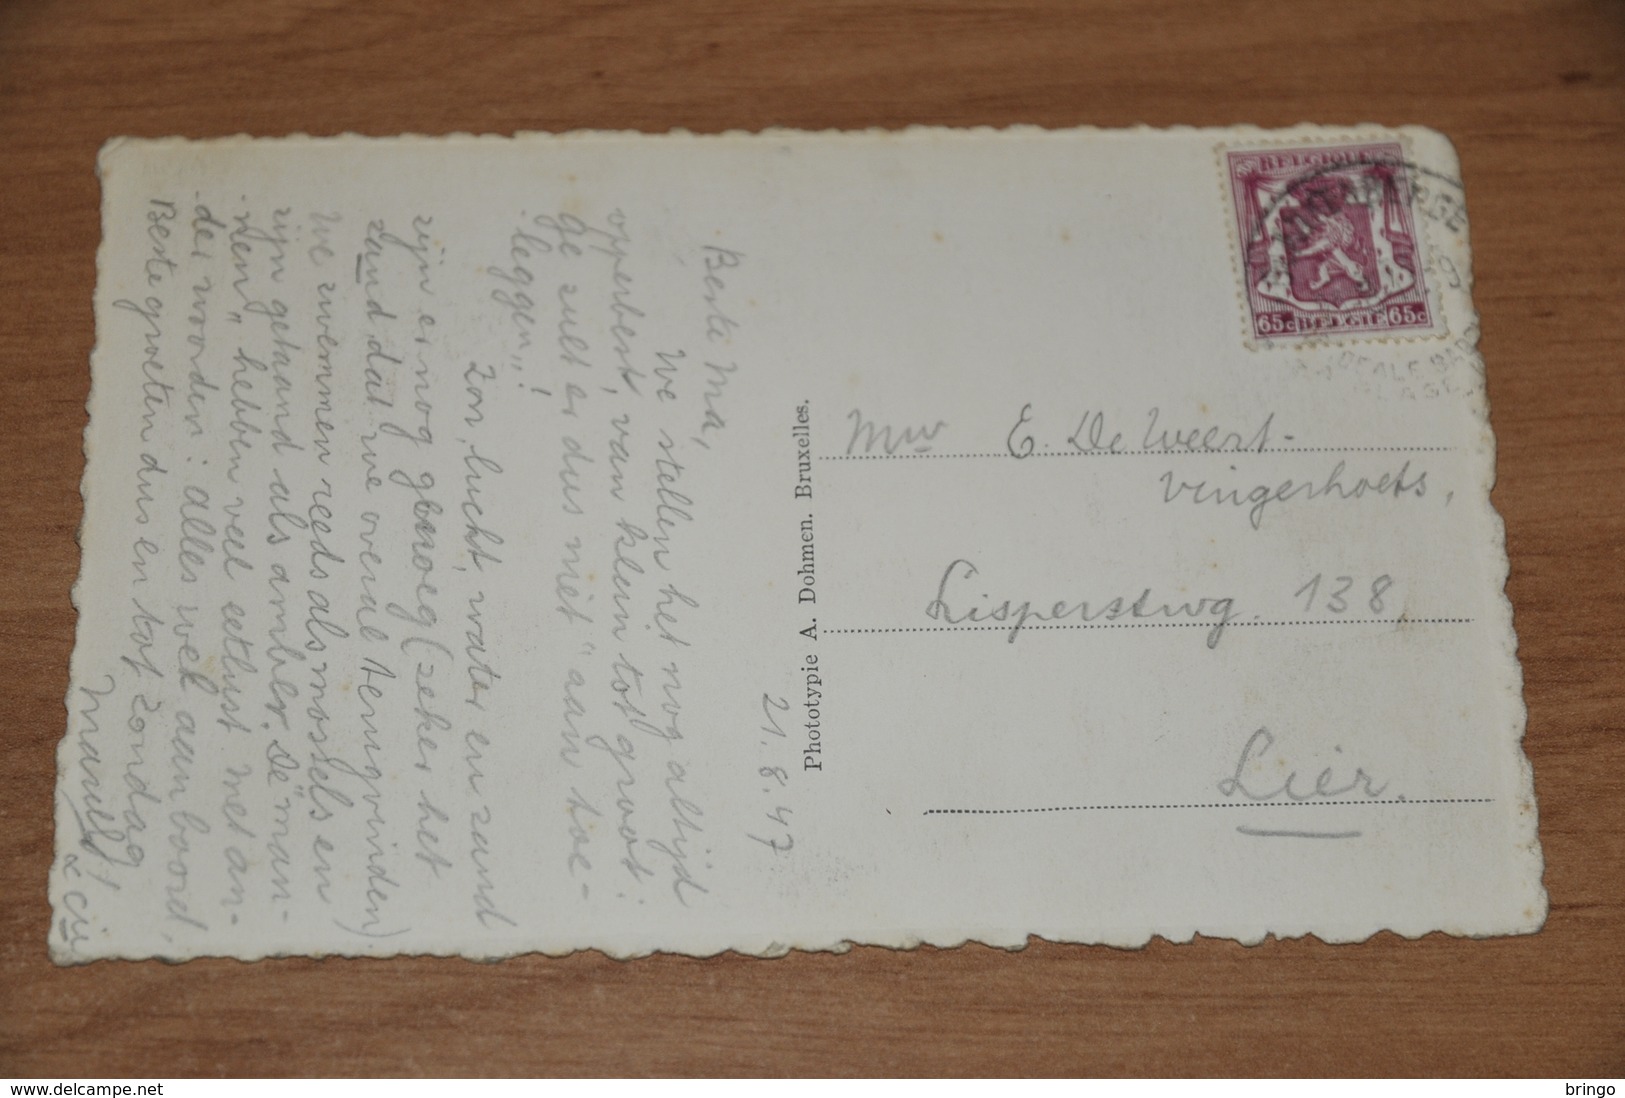 21.8.47
Beste Ma,
We stellen het nog altijd
opperbest, van klein tot groot:
ge zult er dus niet "aan toe-
leggen"!
Zon, lucht, water en zand
zijn er nog genoeg (zeker het
zand dat we overal terugvinden).
We zwemmen reeds als mossels en
zijn getaand als amber. De "man-
nen" hebben veel eetlust met an-
der woorden: alles wel aan boord,
Beste groeten dus en tot Zondag
& Cie
Phototypie A. Dohmen. Bruxelles.
BELGIQUE
65c BELGIE 65c
Mw E. De Weert-
Vingerhoets,
Lisperstwg. 138
Lier.
delcampe.net
bringo